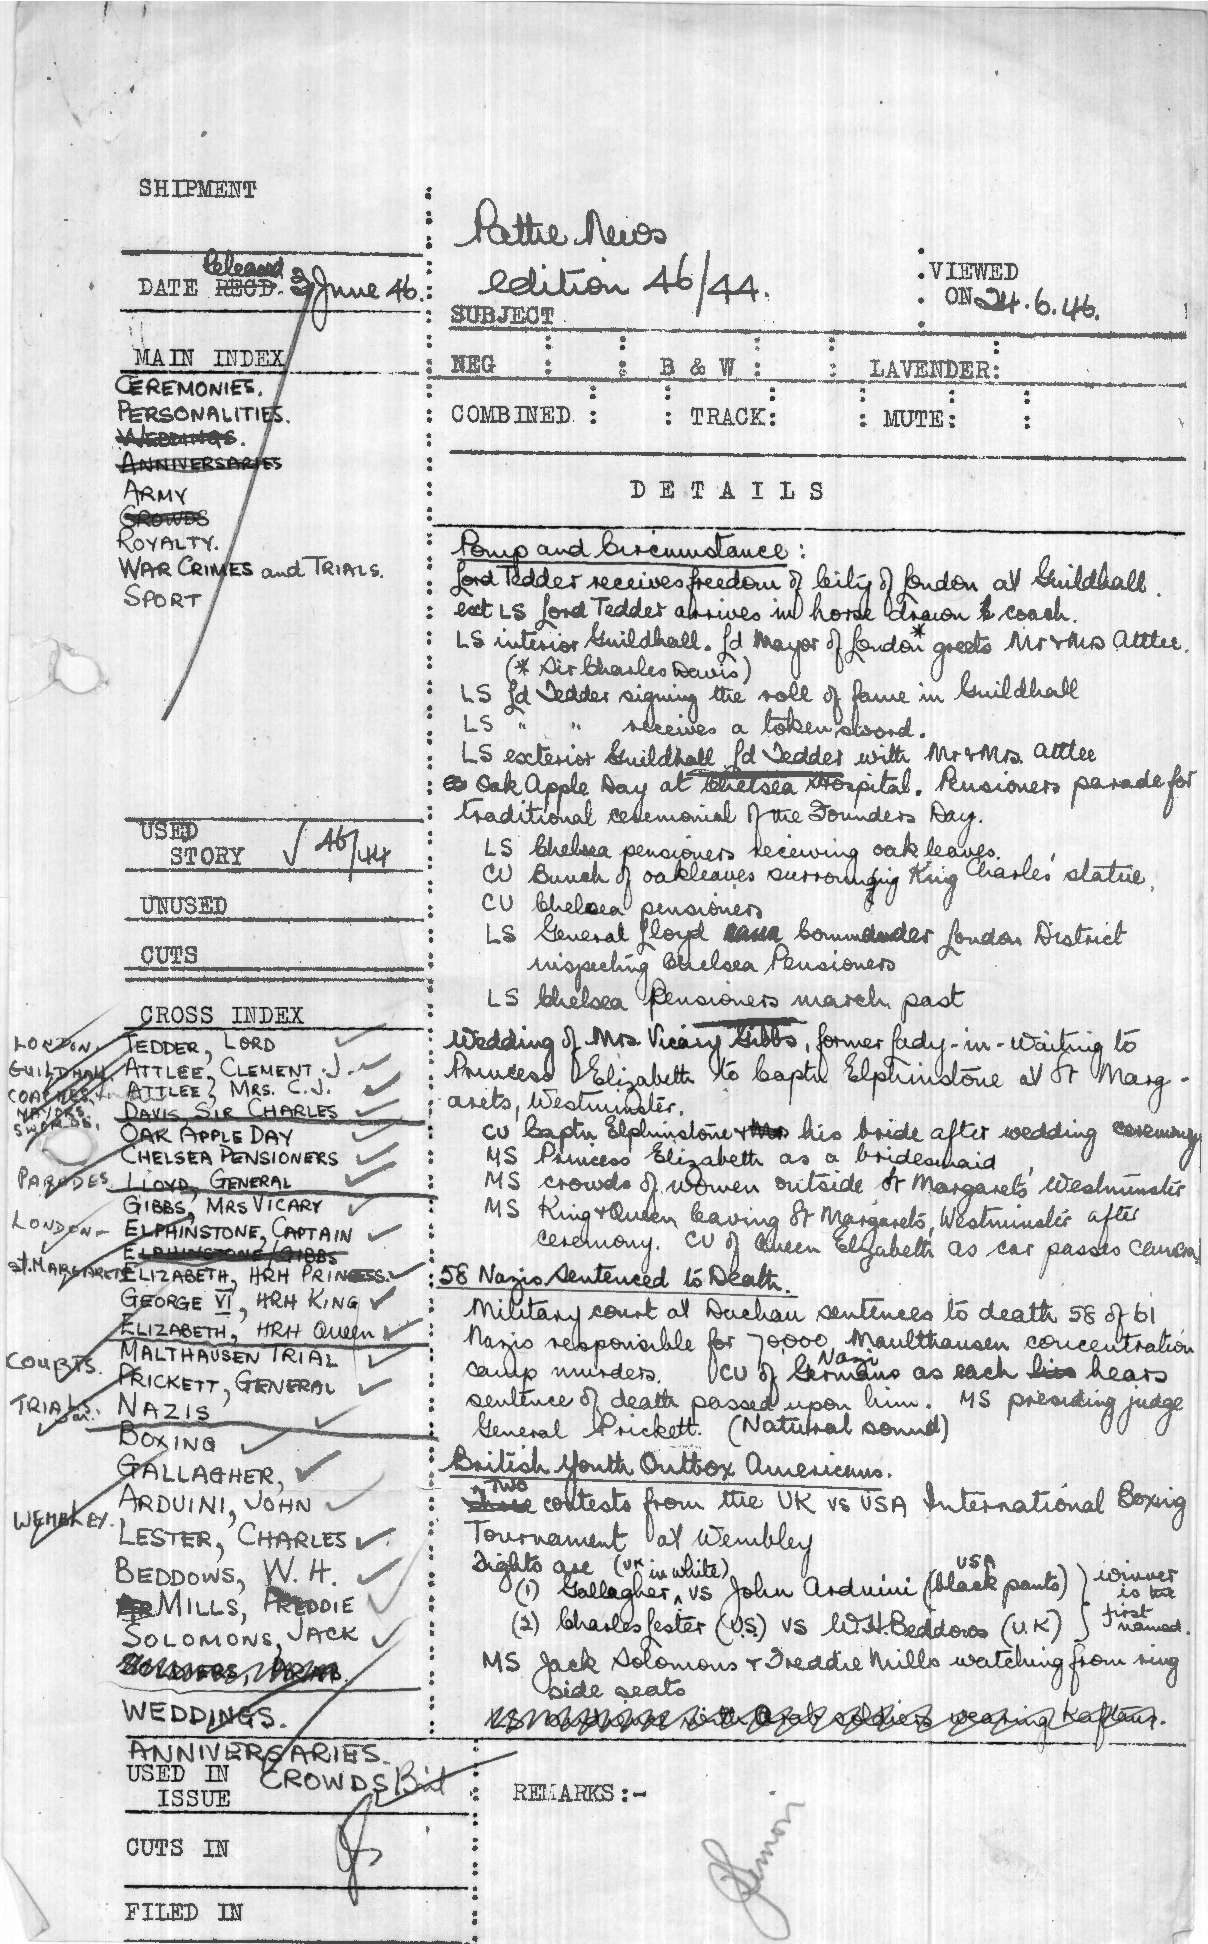 SHIPMENT
DATE RECD. Released 3 June 46.
MAIN INDEX
CEREMONIES.
PERSONALITIES.
WEDDINGS.
ANNIVERSARIES
ARMY
CROWDS
ROYALTY.
WAR CRIMES and TRIALS.
SPORT
USED
STORY √ 46/44
UNUSED
CUTS
CROSS INDEX
LONDON. TEDDER, LORD
GUILDHALL. ATTLEE, CLEMENT. J.
COACHES ATTLEE, MRS. C.J.
MAYORS. DAVIS SIR CHARLES
SWORDS.
OAK APPLE DAY
CHELSEA PENSIONERS
PARADES. LLOYD, GENERAL
GIBBS, MRS VICARY
LONDON - ELPHINSTONE, CAPTAIN
ELPHINSTONE/GIBBS
ST. MARGARETS ELIZABETH, HRH PRINCESS.
GEORGE VI, HRH KING
ELIZABETH, HRH QUEEN
COURTS. MALTHAUSEN TRIAL
PRICKETT, GENERAL
TRIALS NAZIS
BOXING
GALLAGHER,
WEMBLEY. ARDUINI, JOHN
LESTER, CHARLES
BEDDOWS, W. H.
MILLS, FREDDIE
SOLOMONS, JACK
SOLDIERS, ARAB.
WEDDINGS.
ANNIVERSARIES.
USED IN CROWDS
ISSUE
CUTS IN
FILED IN
Pathe News
edition 46/44.
VIEWED
ON 24.6.46.
SUBJECT
NEG : : B & W : : LAVENDER:
COMBINED : : TRACK: : MUTE: :
DETAILS
Pomp and Circumstance:
Lord Tedder receives freedom of City of London at Guildhall.
ext LS Lord Tedder arrives in horse drawn coach.
LS interior Guildhall. Ld Mayor of London* greets Mr & Mrs Atttee.
(* Sir Charles Davis)
LS Ld Tedder signing the roll of fame in Guildhall
LS " " receives a token sword.
LS exterior Guildhall Ld Tedder with Mr & Mrs. Attlee
Oak Apple Day at Chelsea Hospital. Pensioners parade for
traditional ceremonial of the Founders Day.
LS Chelsea pensioners receiving oak leaves.
CU Bunch of oakleaves surrounging King Charles' statue.
CU Chelsea pensioners
LS General Lloyd Commander London District
inspecting Chelsea Pensioners
LS Chelsea Pensioners march past
Wedding of Mrs. Vicary Gibbs, former Lady-in-Waiting to
Princess Elizabeth to Captn Elphinstone at St Marg-
arets, Westminster.
CU Captn. Elphinstone & Mrs his bride after wedding ceremony
MS Princess Elizabeth as a bridesmaid
MS crowds of women outside St Margaret's Westminster
MS King & Queen leaving St Margaret's, Westminster after
ceremony. CU of Queen Elizabeth as car passes camera
58 Nazis Sentenced to Death.
Military court at Dachau sentences to death 58 of 61
Nazis responsible for 70000 Maulthausen concentration
camp murders. CU of Germans Nazi as each hears
sentence of death passed upon him. MS presiding judge
General Prickett. (Natural sound)
British Youth Outbox Americans.
Three Two contests from the UK vs USA International Boxing
Tournament at Wembley
Fights are
(1) Gallagher (UK in white) vs John Arduini (USA black pants) } winner
(2) Charles Lester (U.S.) vs W.H. Beddows (U.K) } is first named.
MS Jack Solomons & Freddie Mills watching from ring
side seats
with Arab soldiers wearing Kaftans.
REMARKS:-